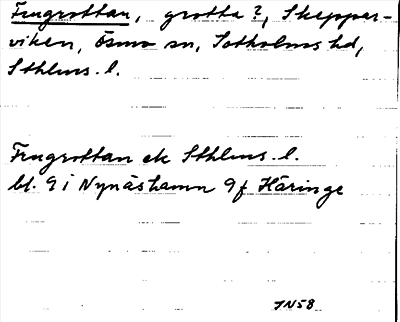 Frugrottan, grotta?, Skeppar-
viken, Ösmo sn, Sotholms hd,
Sthlms. l.
Frugrottan ek Sthlms. l.
bl. 9 i Nynäshamn 9f Häringe
JN58